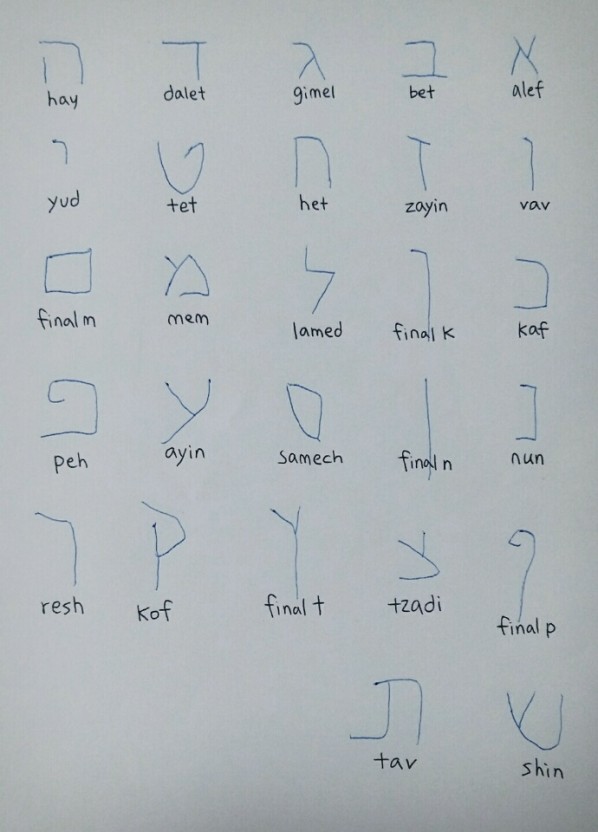 א ב ג ד ה
hay dalet gimel bet alef
ו ז ח ט י
yud tet het zayin vav
כ ך ל מ ם
final m mem lamed final k kaf
נ ן ס ע פ
peh ayin samech final n nun
ף צ ץ ק ר
resh kof final t tzadi final p
ש ת
tav shin